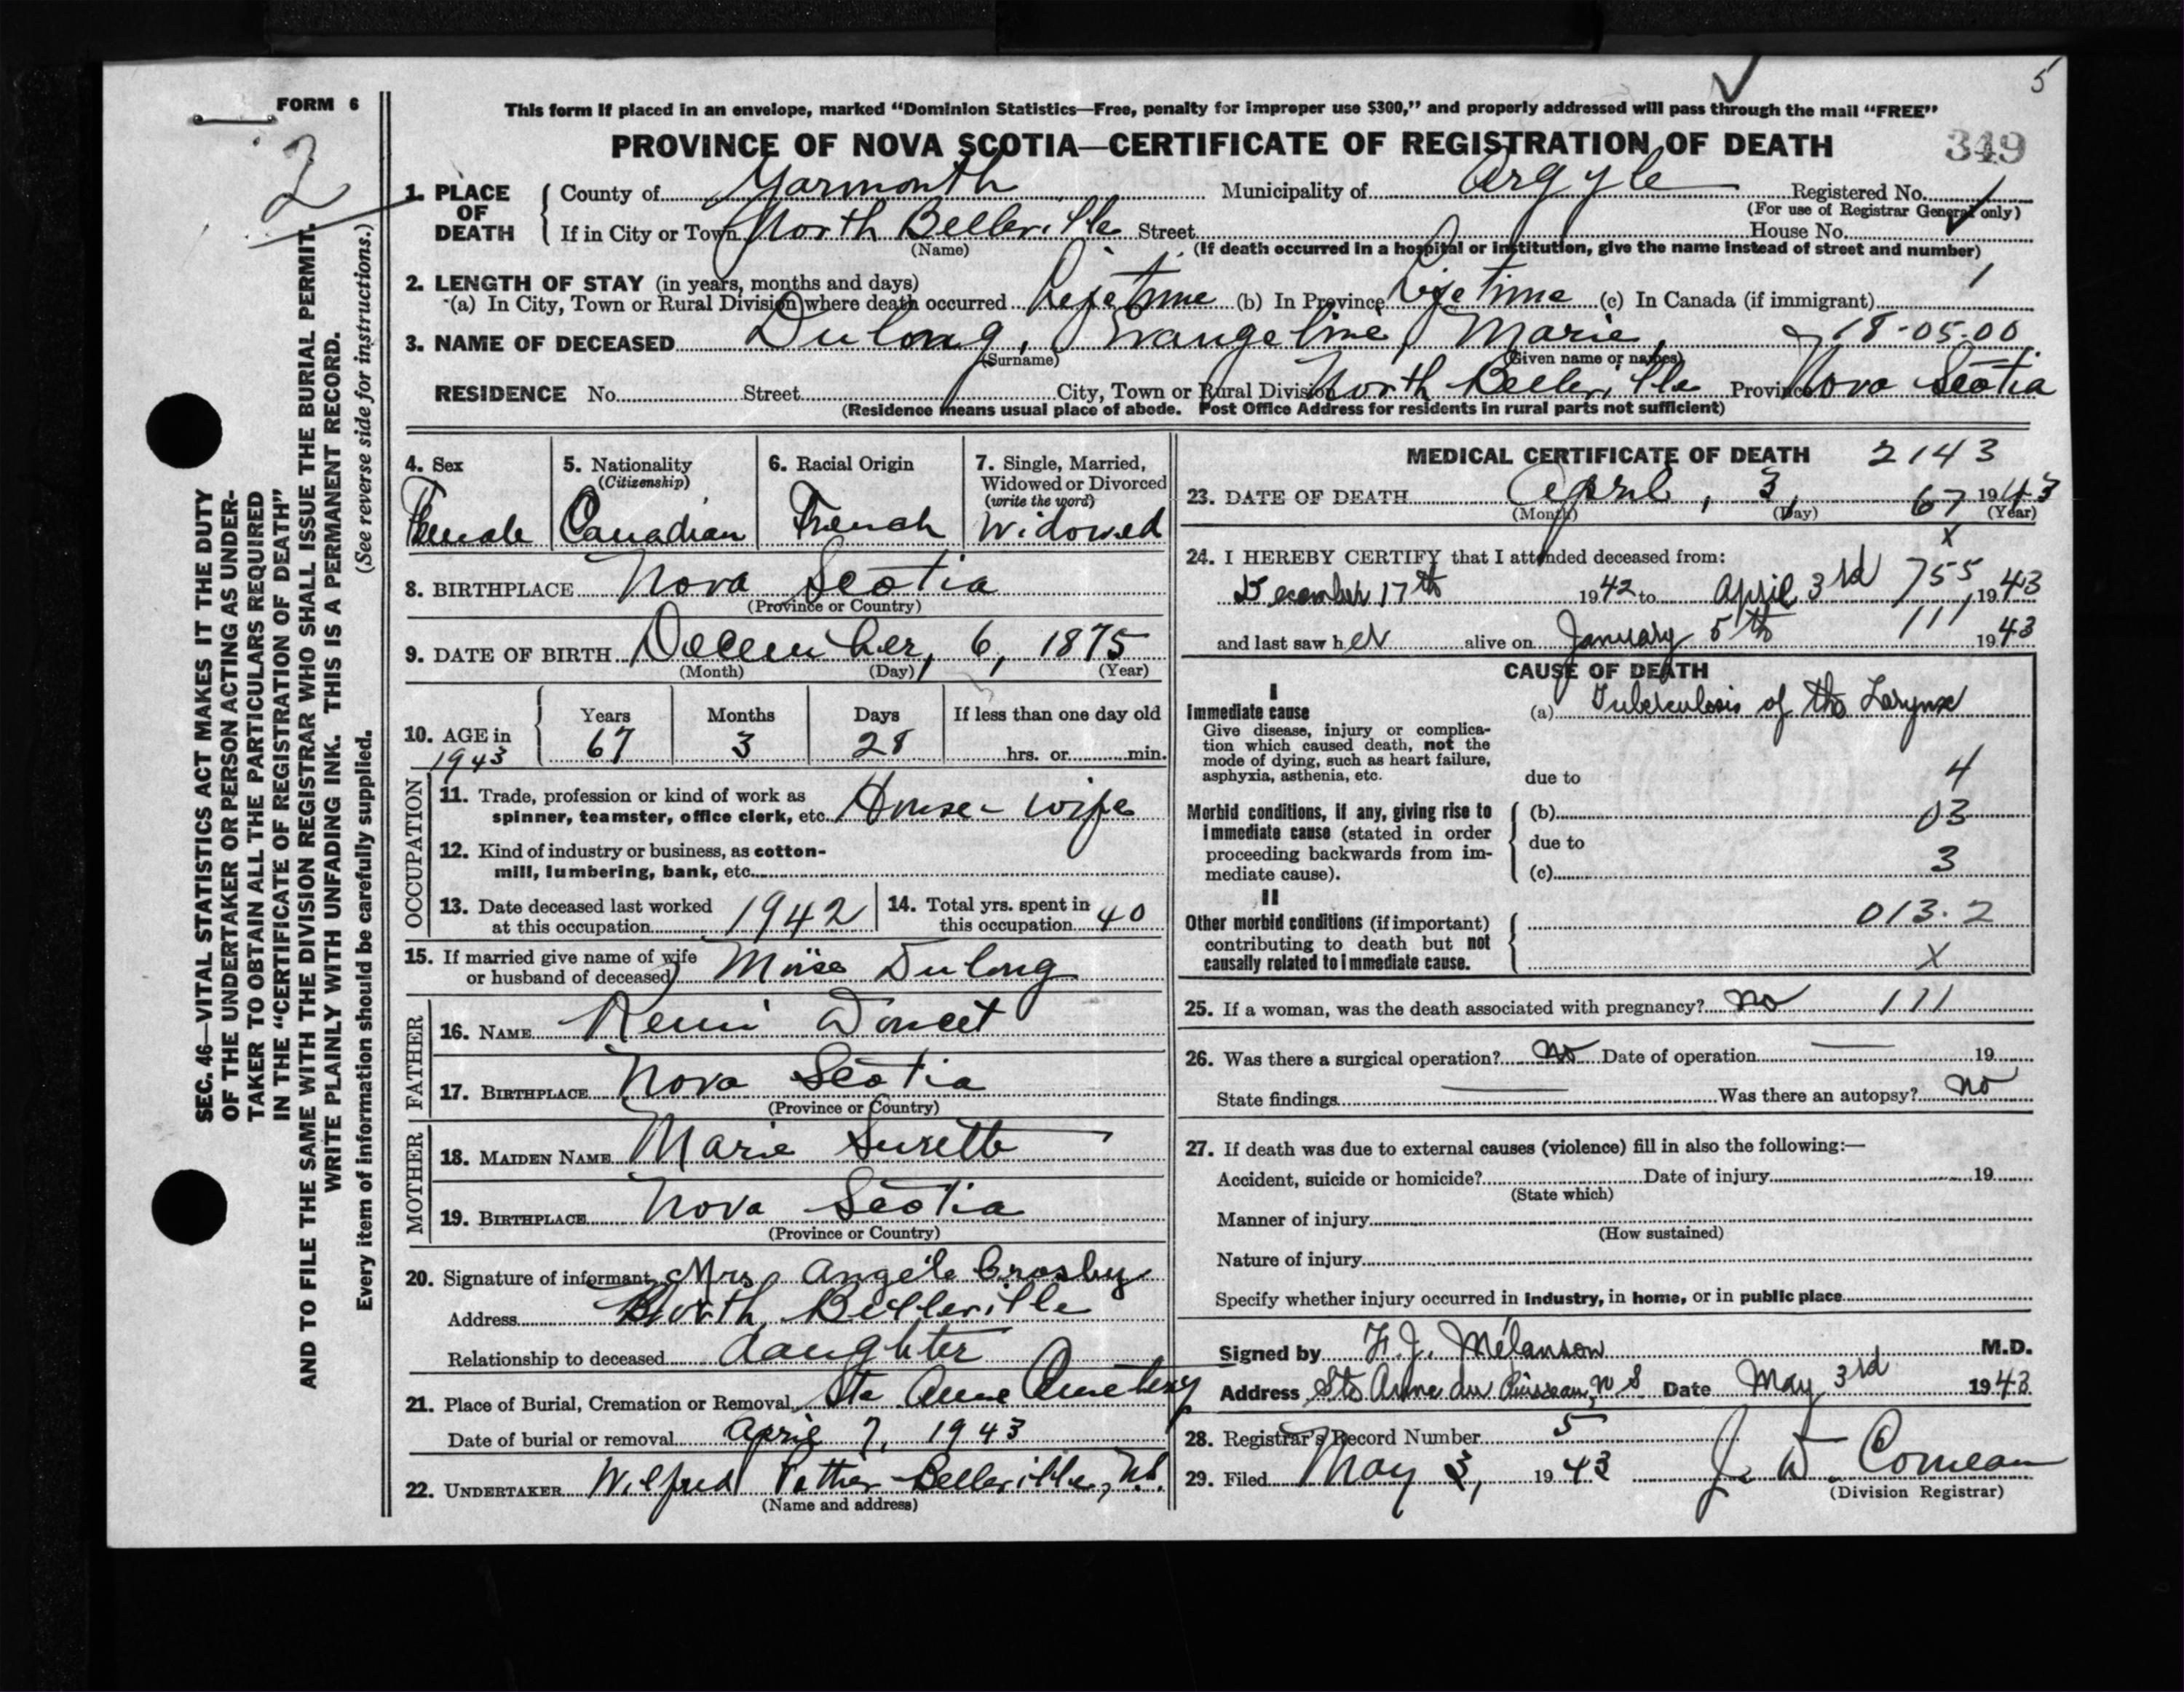 5
FORM 6
2
This form if placed in an envelope, marked “Dominion Statistics—Free, penalty for improper use $300,” and properly addressed will pass through the mail “FREE”
PROVINCE OF NOVA SCOTIA—CERTIFICATE OF REGISTRATION OF DEATH
349
1. PLACE OF DEATH
County of Yarmouth Municipality of Argyle Registered No.
(For use of Registrar General only)
If in City or Town North Belleville Street House No.
(Name) (If death occurred in a hospital or institution, give the name instead of street and number)
2. LENGTH OF STAY (in years, months and days)
(a) In City, Town or Rural Division where death occurred Lifetime (b) In Province Lifetime (c) In Canada (if immigrant) 1
3. NAME OF DECEASED Dulong, Evangeline, Marie, 18-05.00
(Surname) (Given name or names)
RESIDENCE No. Street City, Town or Rural Division North Belleville Province Nova Scotia
(Residence means usual place of abode. Post Office Address for residents in rural parts not sufficient)
SEC. 46—VITAL STATISTICS ACT MAKES IT THE DUTY
OF THE UNDERTAKER OR PERSON ACTING AS UNDER-
TAKER TO OBTAIN ALL THE PARTICULARS REQUIRED
IN THE “CERTIFICATE OF REGISTRATION OF DEATH”
AND TO FILE THE SAME WITH THE DIVISION REGISTRAR WHO SHALL ISSUE THE BURIAL PERMIT.
WRITE PLAINLY WITH UNFADING INK. THIS IS A PERMANENT RECORD.
Every item of information should be carefully supplied. (See reverse side for instructions.)
4. Sex
Female
5. Nationality
(Citizenship)
Canadian
6. Racial Origin
French
7. Single, Married,
Widowed or Divorced
(write the word)
Widowed
8. BIRTHPLACE Nova Scotia
(Province or Country)
9. DATE OF BIRTH December, 6, 1875
(Month) (Day) (Year)
10. AGE in 1943
Years Months Days If less than one day old
67 3 28 hrs. or min.
OCCUPATION
11. Trade, profession or kind of work as
spinner, teamster, office clerk, etc. House-wife
12. Kind of industry or business, as cotton-
mill, lumbering, bank, etc.
13. Date deceased last worked
at this occupation 1942
14. Total yrs. spent in
this occupation 40
15. If married give name of wife
or husband of deceased Moïse Dulong
FATHER
16. NAME Remi Doucet
17. BIRTHPLACE Nova Scotia
(Province or Country)
MOTHER
18. MAIDEN NAME Marie Surette
19. BIRTHPLACE Nova Scotia
(Province or Country)
20. Signature of informant Mrs Angèle Crosby
Address North Belleville
Relationship to deceased daughter
21. Place of Burial, Cremation or Removal Ste Anne Cemetery
Date of burial or removal April 7, 1943
22. UNDERTAKER Wilfred Pothier Belleville, N.S.
(Name and address)
MEDICAL CERTIFICATE OF DEATH 2143
23. DATE OF DEATH April, 3, 67 1943
(Month) (Day) (Year)
x
24. I HEREBY CERTIFY that I attended deceased from:
December 17th 1942 to April 3rd 755, 1943
and last saw her alive on January 5th 111 1943
CAUSE OF DEATH
I
Immediate cause
Give disease, injury or complica-
tion which caused death, not the
mode of dying, such as heart failure,
asphyxia, asthenia, etc.
(a) Tuberculosis of the Larynx
due to 4
Morbid conditions, if any, giving rise to
immediate cause (stated in order
proceeding backwards from im-
mediate cause).
(b) 03
due to
(c) 3
II
Other morbid conditions (if important)
contributing to death but not
causally related to immediate cause.
013.2
X
25. If a woman, was the death associated with pregnancy? no 111
26. Was there a surgical operation? no Date of operation — 19
State findings — Was there an autopsy? no
27. If death was due to external causes (violence) fill in also the following:—
Accident, suicide or homicide? Date of injury 19
(State which)
Manner of injury
(How sustained)
Nature of injury
Specify whether injury occurred in industry, in home, or in public place
Signed by F.J. Mélanson M.D.
Address Ste Anne du Ruisseau, N S Date May 3rd 1943
28. Registrar's Record Number 5
29. Filed May 3, 1943 J. W. Comeau
(Division Registrar)